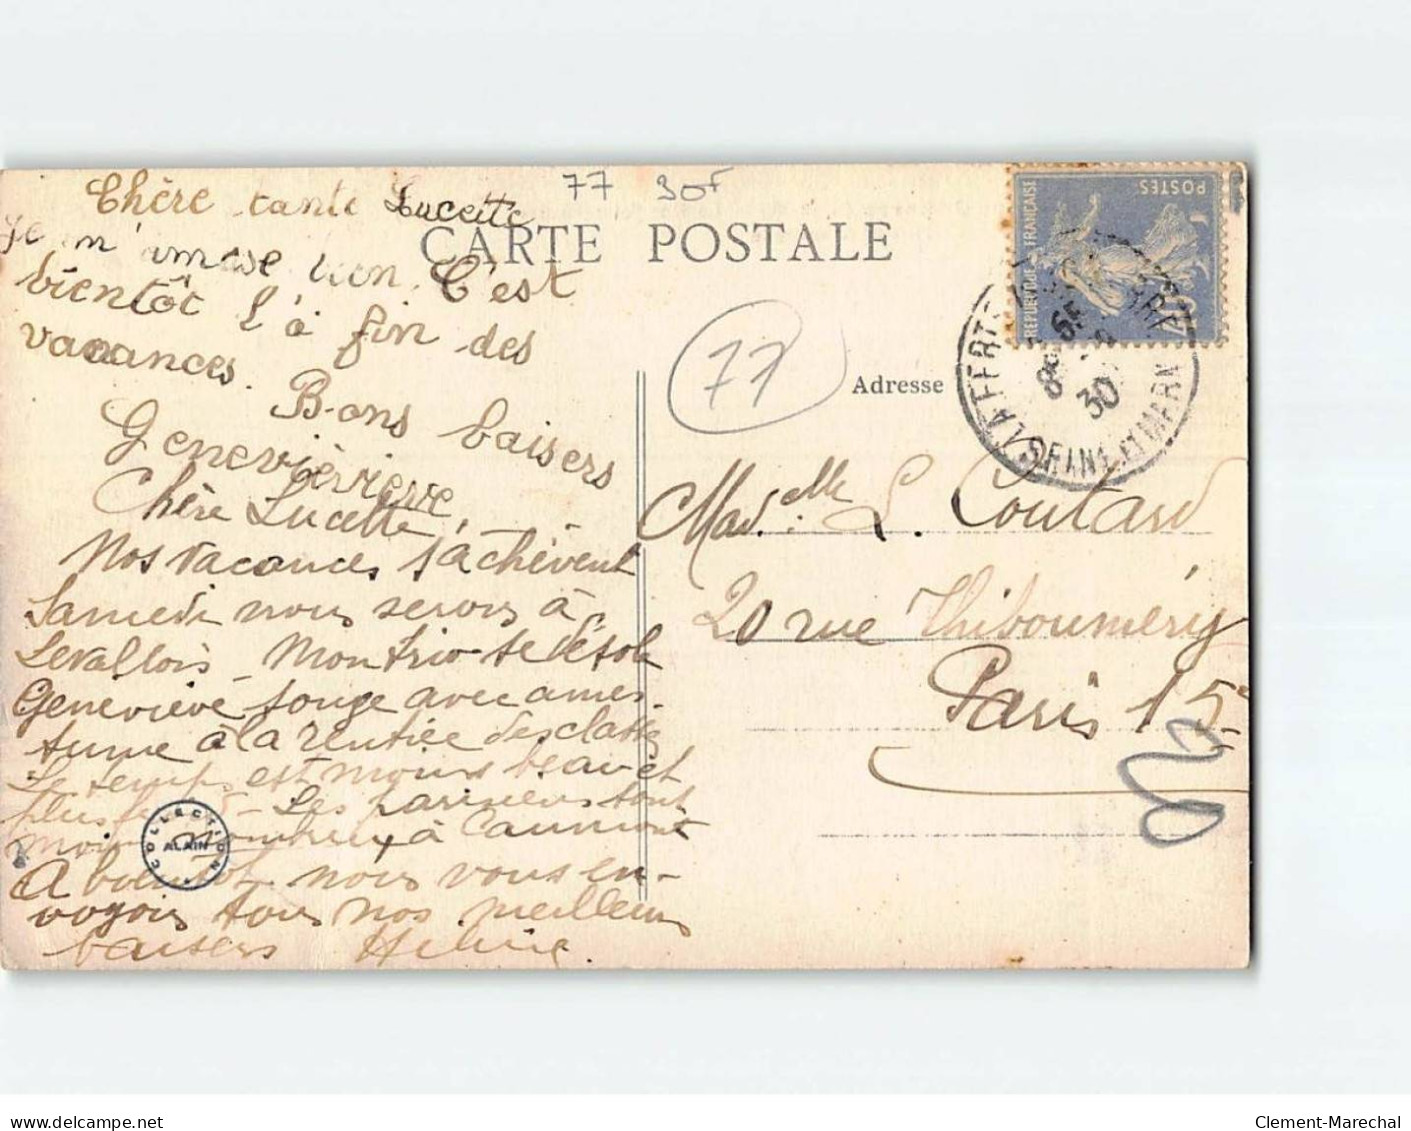 77 30F
CARTE POSTALE
Chère tante Lucette
Je m'amuse bien. C'est
bientôt l'à fin des
vacances.
Bons baisers
Genevièvieve
Chère Lucette,
Nos vacances s'achèvent
Samedi nous serons à
Levallois Mon trio se désole
Geneviève songe avec amer-
tume à la rentrée des classes
Le temps est moins beau et
plus Les parisiens sont
moins nombreux à Caumont
A bientôt nous vous en-
voyons tous nos meilleurs
baisers Hélène
COLLECTION
ALAIN
REPUBLIQUE FRANÇAISE
POSTES
40c
LA FERTE-S-JOUARRE
8
30
SEINE ET MARNE
77
Adresse
Mad.elle L. Coutard
20 rue Thibouméry
Paris 15e
Clement-Marechal
www.delcampe.net